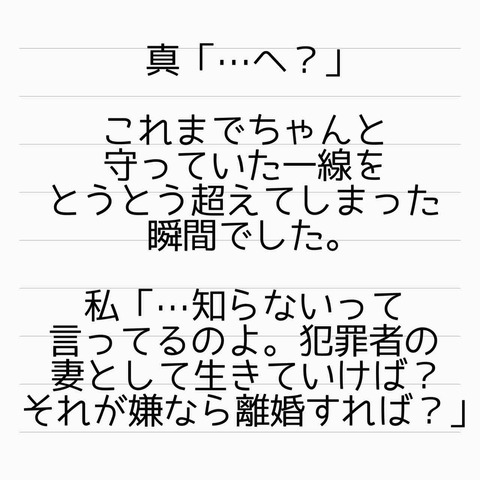 真「…へ？」
これまでちゃんと
守っていた一線を
とうとう超えてしまった
瞬間でした。
私「…知らないって
言ってるのよ。犯罪者の
妻として生きていけば？
それが嫌なら離婚すれば？」